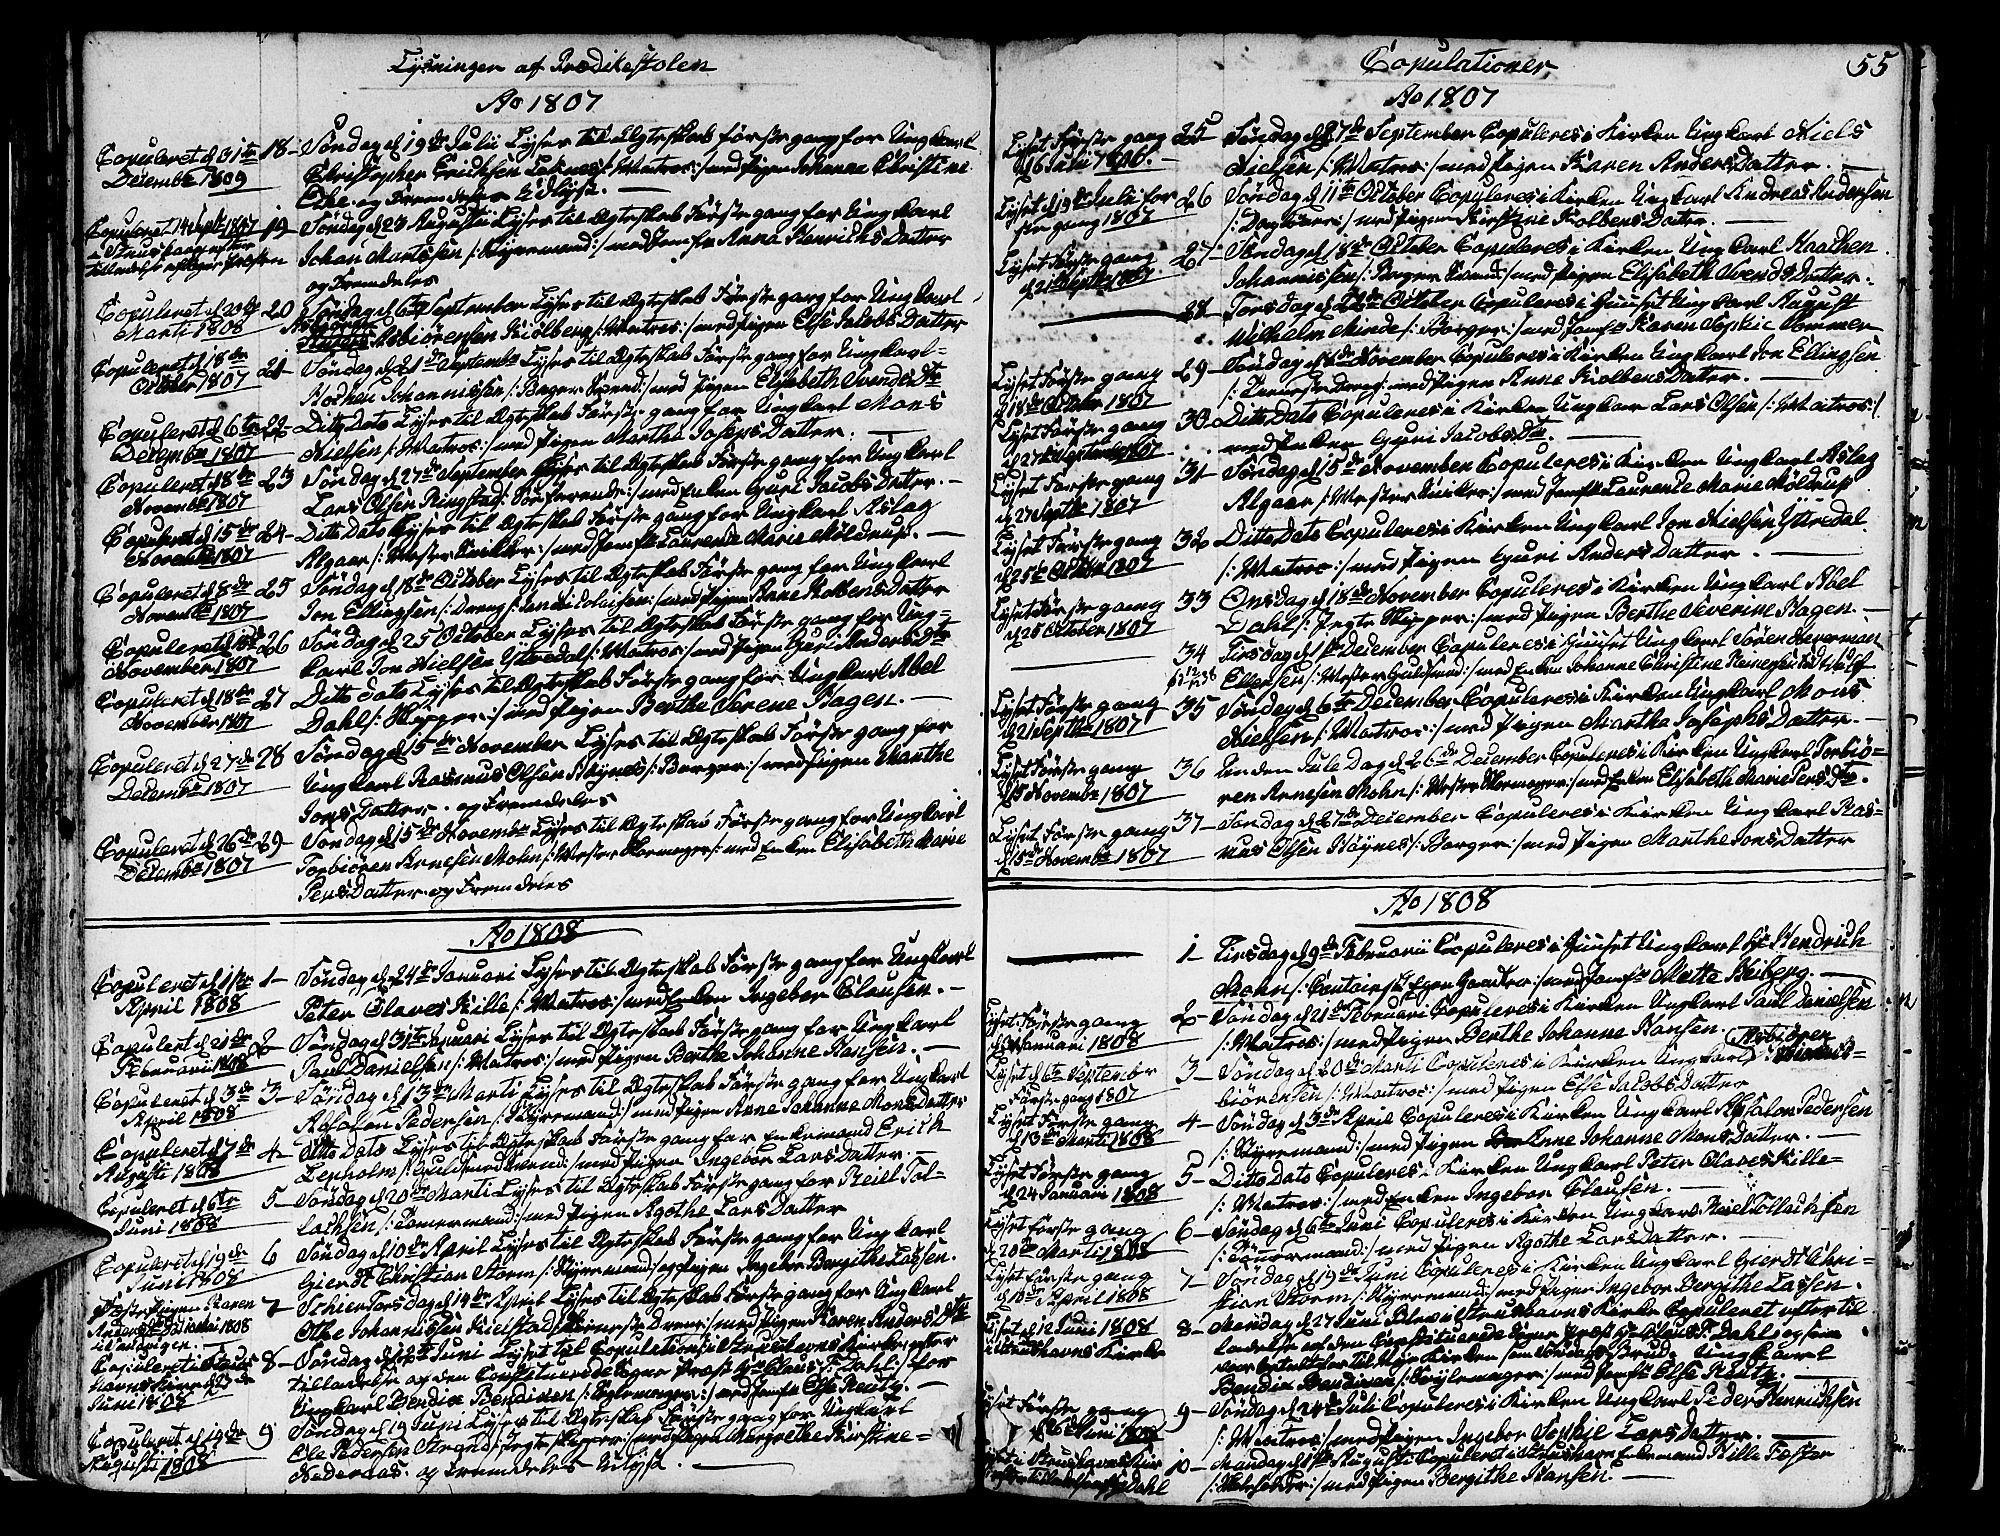 Lysninger af Prædikestolen
Ao 1807
Copuleret d 31te
Decembr 1809
18- Søndag d 19de Julii Lyses til Ægteskab første gang for Ungkarl
Christopher Erichsen /: Matros :/ med Pigen Johanne Christine
og Fremdeles Udlyst. —
Copuleret 14 Septbr 1807
19 Søndag d 23 Augusti Lyses til Ægteskab første gang for Ungkarl
Johan Martssen /: Styremand :/ med Jomfr Anna Henrichs Datter
og Fremdeles
Copuleret d 20de
Marti 1808
20 Søndag d 6te September Lyses til Ægteskab første gang for Ungkarl
Asbiörensen /: Matros :/ med Pigen Else Jacobs Datter
Copuleret d 18de
October 1807
21 Søndag d 21de Septembr Lyses til Ægteskab første gang for Ungkarl
Johannissen /: Borger Svend :/ med Pigen Elisabeth Svends Dtr
Copuleret d 6te
Decembr 1807
22 Ditto Dato Lyses til Ægteskab første gang for Ungkarl Mons
Nielsen /: Matros :/ med Pigen Martha Joseps Datter. —
Copuleret d 8de
Novembr 1807
23 Søndag d 27de September Lyses til Ægteskab første gang for Ungkarl
Lars Olsen Ringstad /: Søefarende :/ med Enken Guri Jacobs Datter. —
Copuleret d 15de
Novembr 1807
24- Ditto Dato Lyses til Ægteskab første gang for Ungkarl Aslag
Algaar /: Mester Snikker :/ med Jomfr Laurense Marie Möldrup. —
Copuleret d 8de
Novembr 1807
25 Søndag d 18de October Lyses til Ægteskab første gang for Ungkarl
Jon Ellingsen /: Dreng :/ med Pigen Anne Kolbens Datter
November 1807
26 Søndag d 25 October Lyses til Ægteskab første gang for Ung-
karl Jon Nielsen Yttredal /: Matros :/ med Pigen Guri Anders Dtr
Copuleret d 18de
November 1807
27 Ditto Dato Lyses til Ægteskab første gang for Ungkarl Abel
Dahl /: Skipper :/ med Pigen Berthe Severene Hagen. —
Copuleret d 27de
Decembr 1807
28 Søndag d 15de November Lyses til Ægteskab første gang for
Ungkarl Rasmus Olsen Röynes /: Borger :/ med Pigen Marthe
Jons Datter. og Fremdeles
Copuleret d 26de
Decembr 1807
29- Søndag d 15de Novembr Lyses til Ægteskab første gang for Ungkarl
Torbiören Arnesen Mohn /: Mester Skomager :/ med Enken Elisabeth Marie
Pers Datter. og Fremdeles
Ao 1808
Copuleret d
April 1808
1- Søndag d 24de Januari Lyses til Ægteskab første gang for Ungkarl
Peter Olaves Kille /: Matros :/ med Enken Ingebor Clausen. —
Copuleret d 21de
Februarii 1808
2- Søndag d 31te Januari Lyses til Ægteskab første gang for Ungkarl
Paul Danielsen /: Matros :/ med Pigen Berthe Johanne Hansen. —
Copuleret d 3de
April 1808
3- Søndag d 13de Marti Lyses til Ægteskab første gang for Ungkarl
Absalon Pedersen /: Styremand :/ med Pigen Anne Johanne Mons Datter
Copuleret d 7de
Augusti 1808
4- Ditto Dato Lyses til Ægteskab første gang for Enkemand Erich
Lenholm /: Guldsmed Svend :/ med Pigen Ingebor Lars Datter. —
Copuleret d 6te
Juni 1808
5- Søndag d 20de Marti Lyses til Ægteskab første gang for Reiel Tol-
lachsen /: Tömermand :/ med Pigen Agothe Lars Datter
Copuleret d 19de
Juni 1808
6 Søndag d 10de April Lyses til Ægteskab første gang for Ungkarl
Gierdt Christian Storm /: Styremand :/ og Pigen Ingebor Bergithe Lassen.
7- Schiertorsdag d 14de April Lyses til Ægteskab første gang for Ungkarl
Othe Johannissen Kielstad /: Dreng :/ med Pigen Karen Anders Dtr
Juni 1808
8- Søndag d 12te Juni Lyset til Copulation i Struushavns Kirke, efter
tilladelse af den Constituerede Egne Prost Hr Claus F. Dahl :/ for
Ungkarl Bendix Bendixen /: Seylemager :/ med Jomfr Else Reutz. —
Copuleret d 14de
Augusti 1808
9 Søndag d 19 Juni Lyses til Ægteskab første gang for Ungkarl
Ole Pedersen Strand /: Jegte Skipper :/ med Pigen Margrethe Kirstine
og Fremdeles Udlyst. —
55
Copulationer
Ao 1807
Lyset første gang
d 16 Julii 1806.
25 Søndag d 27de September Copuleres i Kirken Ungkarl Niels
Nielsen /: Matros :/ med Pigen Karen Anders Datter. —
Lyset d 19de Juli for-
ste gang 1807
26 Søndag d 11te October Copuleres i Kirken Ungkarl Andreas Andersen
/: Dagløner :/ med Pigen Kirstine Kolbens Datter —
Lyset første gang
d 21 Septbr 1807
27- Søndag d 18de October Copuleres i Kirken Ungkarl
Johannissen /: Borger Svend :/ med Pigen Elisabeth Svends Datter.
28 Torsdag d October Copuleres i Huuset Ungkarl August
Wilhelm Minde /: Borger :/ med Jomfr Karen Sophie Sommer
Lyset første gang
d 18de October 1807
29- Søndag d 8de November Copuleres i Kirken Ungkarl Jon Ellingsen
med Pigen Anne Kolbens Datter. —
Lyset første gang
d 27de September 1807
30 Ditto Dato Copuleres i Kirken Ungkarl Lars Olsen /: Matros :/
med Enken Guri Jacobs Dtr. —
Lyset første gang
d 27 Septbr 1807
31 Søndag d 15de November Copuleres i Kirken Ungkarl Aslag
Algaar /: Mester Snicker :/ med Jomfr Laurente Marie Möldrup
Lyset første gang
d 25de Octbr 1807
32 Ditto Dato Copuleres i Kirken Ungkarl Jon Nielsen Yttredal
/: Matros :/ med Pigen Guri Anders Datter. —
Lyset første gang
d 25 October 1807
33 Onsdag d 18de November Copuleres i Kirken Ungkarl Abel
Dahl /: Jegte Skipper :/ med Pigen Berthe Severine Hagen. —
34 Tirsdag d 1ste December Copuleres i Huuset Ungkarl Søren Neverman
Ellersen /: Mester Guldsmed :/ med Enken Johanne Christine
Lyset første gang
d 21 Septbr 1807
35 Søndag d 6te December Copuleres i Kirken Ungkarl Mons
Nielsen /: Matros :/ med Pigen Martha Josephs Datter. —
Lyset første gang
d 15 Novembr 1807
36 Anden Jule Dag d 26de December Copuleres i Kirken Ungkarl Torbiö-
ren Arnesen Mohn /: Mester Skomager :/ med Enken Elisabeth Marie Pers Dtr.
Lyset første gang
d 15de Novembr 1807
37- Søndag d 27de December Copuleres i Kirken Ungkarl Ras-
mus Olsen Röynes /: Borger :/ med Pigen Marthe Jons Datter
Ao 1808
1- Tirsdag d 9de Februarii Copuleres i Huuset Ungkarl Hr Hendrich
Mohn /: Contoirist :/ med Jomfr Mette Heiberg. —
Lyset første gang
d Januarii 1808
2- Søndag d 21de Februari Copuleres i Kirken Ungkarl Paul Danielsen
/: Matros :/ med Pigen Berthe Johanne Hansen.
Lyset d 6te September
første gang 1807
3- Søndag d 20de Marti Copuleres i Kirken Ungkarl Asbiören
biörensen /: Matros :/ med Pigen Else Jacobs Datter
Lyset første gang
d 13de Marti 1808
4- Søndag d 3de April Copuleres i Kirken Ungkarl Absalon Pedersen
/: Styremand :/ med Pigen Anne Johanne Mons Datter. —
Lyset første gang
d 24 Januarii 1808
5- Ditto Dato Copuleres i Kirken Ungkarl Peter Olaves Kille-
/: Matros :/ med Enken Ingebor Clausen. —
Lyset første gang
d 20de Marti 1808
6- Søndag d 6te Juni Copuleres i Kirken Ungkarl Reiel Tollachsen
/: Tömermand :/ med Pigen Agothe Lars Datter. —
Lyset første gang
d 10de April 1808
7- Søndag d 19de Juni Copuleres i Kirken Ungkarl Gierdt Chri-
stian Storm /: Styremand :/ med Pigen Ingebor Bergithe Lassen.
Lyset d 12 Juni 1808
i Struushavns Kirke
8- Mandag d 27 Juni Blev i Struushavns Kirke Copuleret efter til
ladelse af den Constituerede Egne Prost Hr Claus F. Dahl
Ungkarl
Bendix Bendixen /: Seylemager :/ med Jomfr Else Reutz. —
Lyset første gang
Juni 1808
9- Søndag d 24de Juli Copuleres i Kirken Ungkarl Peder Henrichsen
/: Matros :/ med Pigen Ingebor Sophie Lars Datter.
10- Mandag d 1ste Augusti Copuleret i Struushavn Enkemand Kille Foster
med Pigen Bergithe Hansen. —